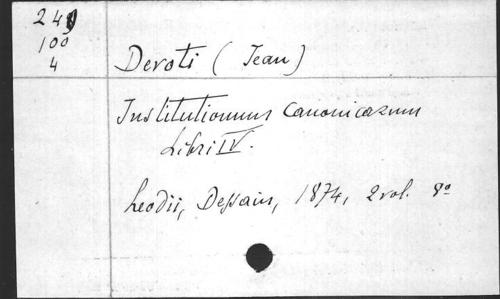 249
100
4
Devoti (Jean)
Institutionum Canonicarum
Libri IV.
Leodii, Dessain, 1874, 2 vol. 8º